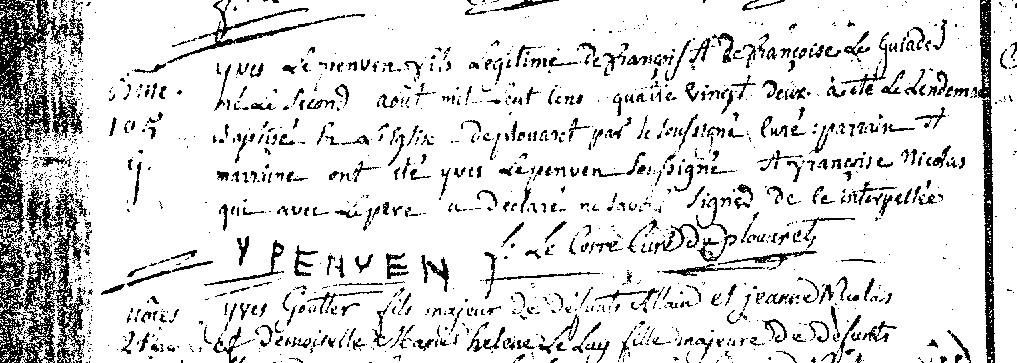 yves Le penven fils Légitime de françois et de françoise Le Guiader
né Le Second aout mil Sept Cens quatre vingt deux a été Le Lendemain
Baptisé En L'Eglise de plouaret par le soussigné Curé : parrain et
105
marraine ont été yves Le penven Soussigné et françoise Nicolas
qui avec Le pere a declaré ne savoir Signer de ce interpellée
Y PENVEN f. Le Corre Curé de plouaret
nôces yves Goutter fils majeur de defunts Allain et jeanne Nicolas
et demoiselle Marie helene Le Luy fille majeure de defunts